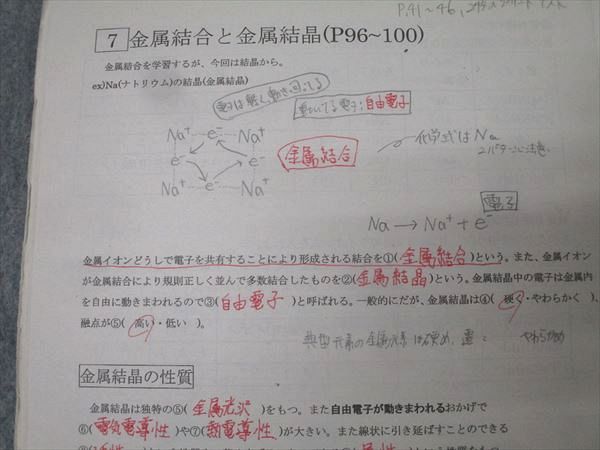 P.41~46,
7 金属結合と金属結晶(P96~100)
金属結合を学習するが、今回は結晶から。
ex)Na(ナトリウム)の結晶(金属結晶)
電子は軽く、動き回ってる
動いてる電子:自由電子
Na⁺ e⁻ Na⁺
e⁻ e⁻
Na⁺ e⁻ Na⁺
金属結合
化学式はNa
2パターンに注意
電子
Na → Na⁺ + e⁻
金属イオンどうしで電子を共有することにより形成される結合を①(金属結合)という。また、金属イオン
が金属結合により規則正しく並んで多数結合したものを②(金属結晶)という。金属結晶中の電子は金属内
を自由に動きまわれるので③(自由電子)と呼ばれる。一般的にだが、金属結晶は④(硬く・やわらかく)、
融点が⑤(高い・低い)。
典型元素の金属元素は硬め、 やわらかめ
金属結晶の性質
金属結晶は独特の⑤(金属光沢)をもつ。また自由電子が動きまわれるおかげで
⑥(電気電導性)や⑦(熱電導性)が大きい。また線状に引き延ばすことのできる